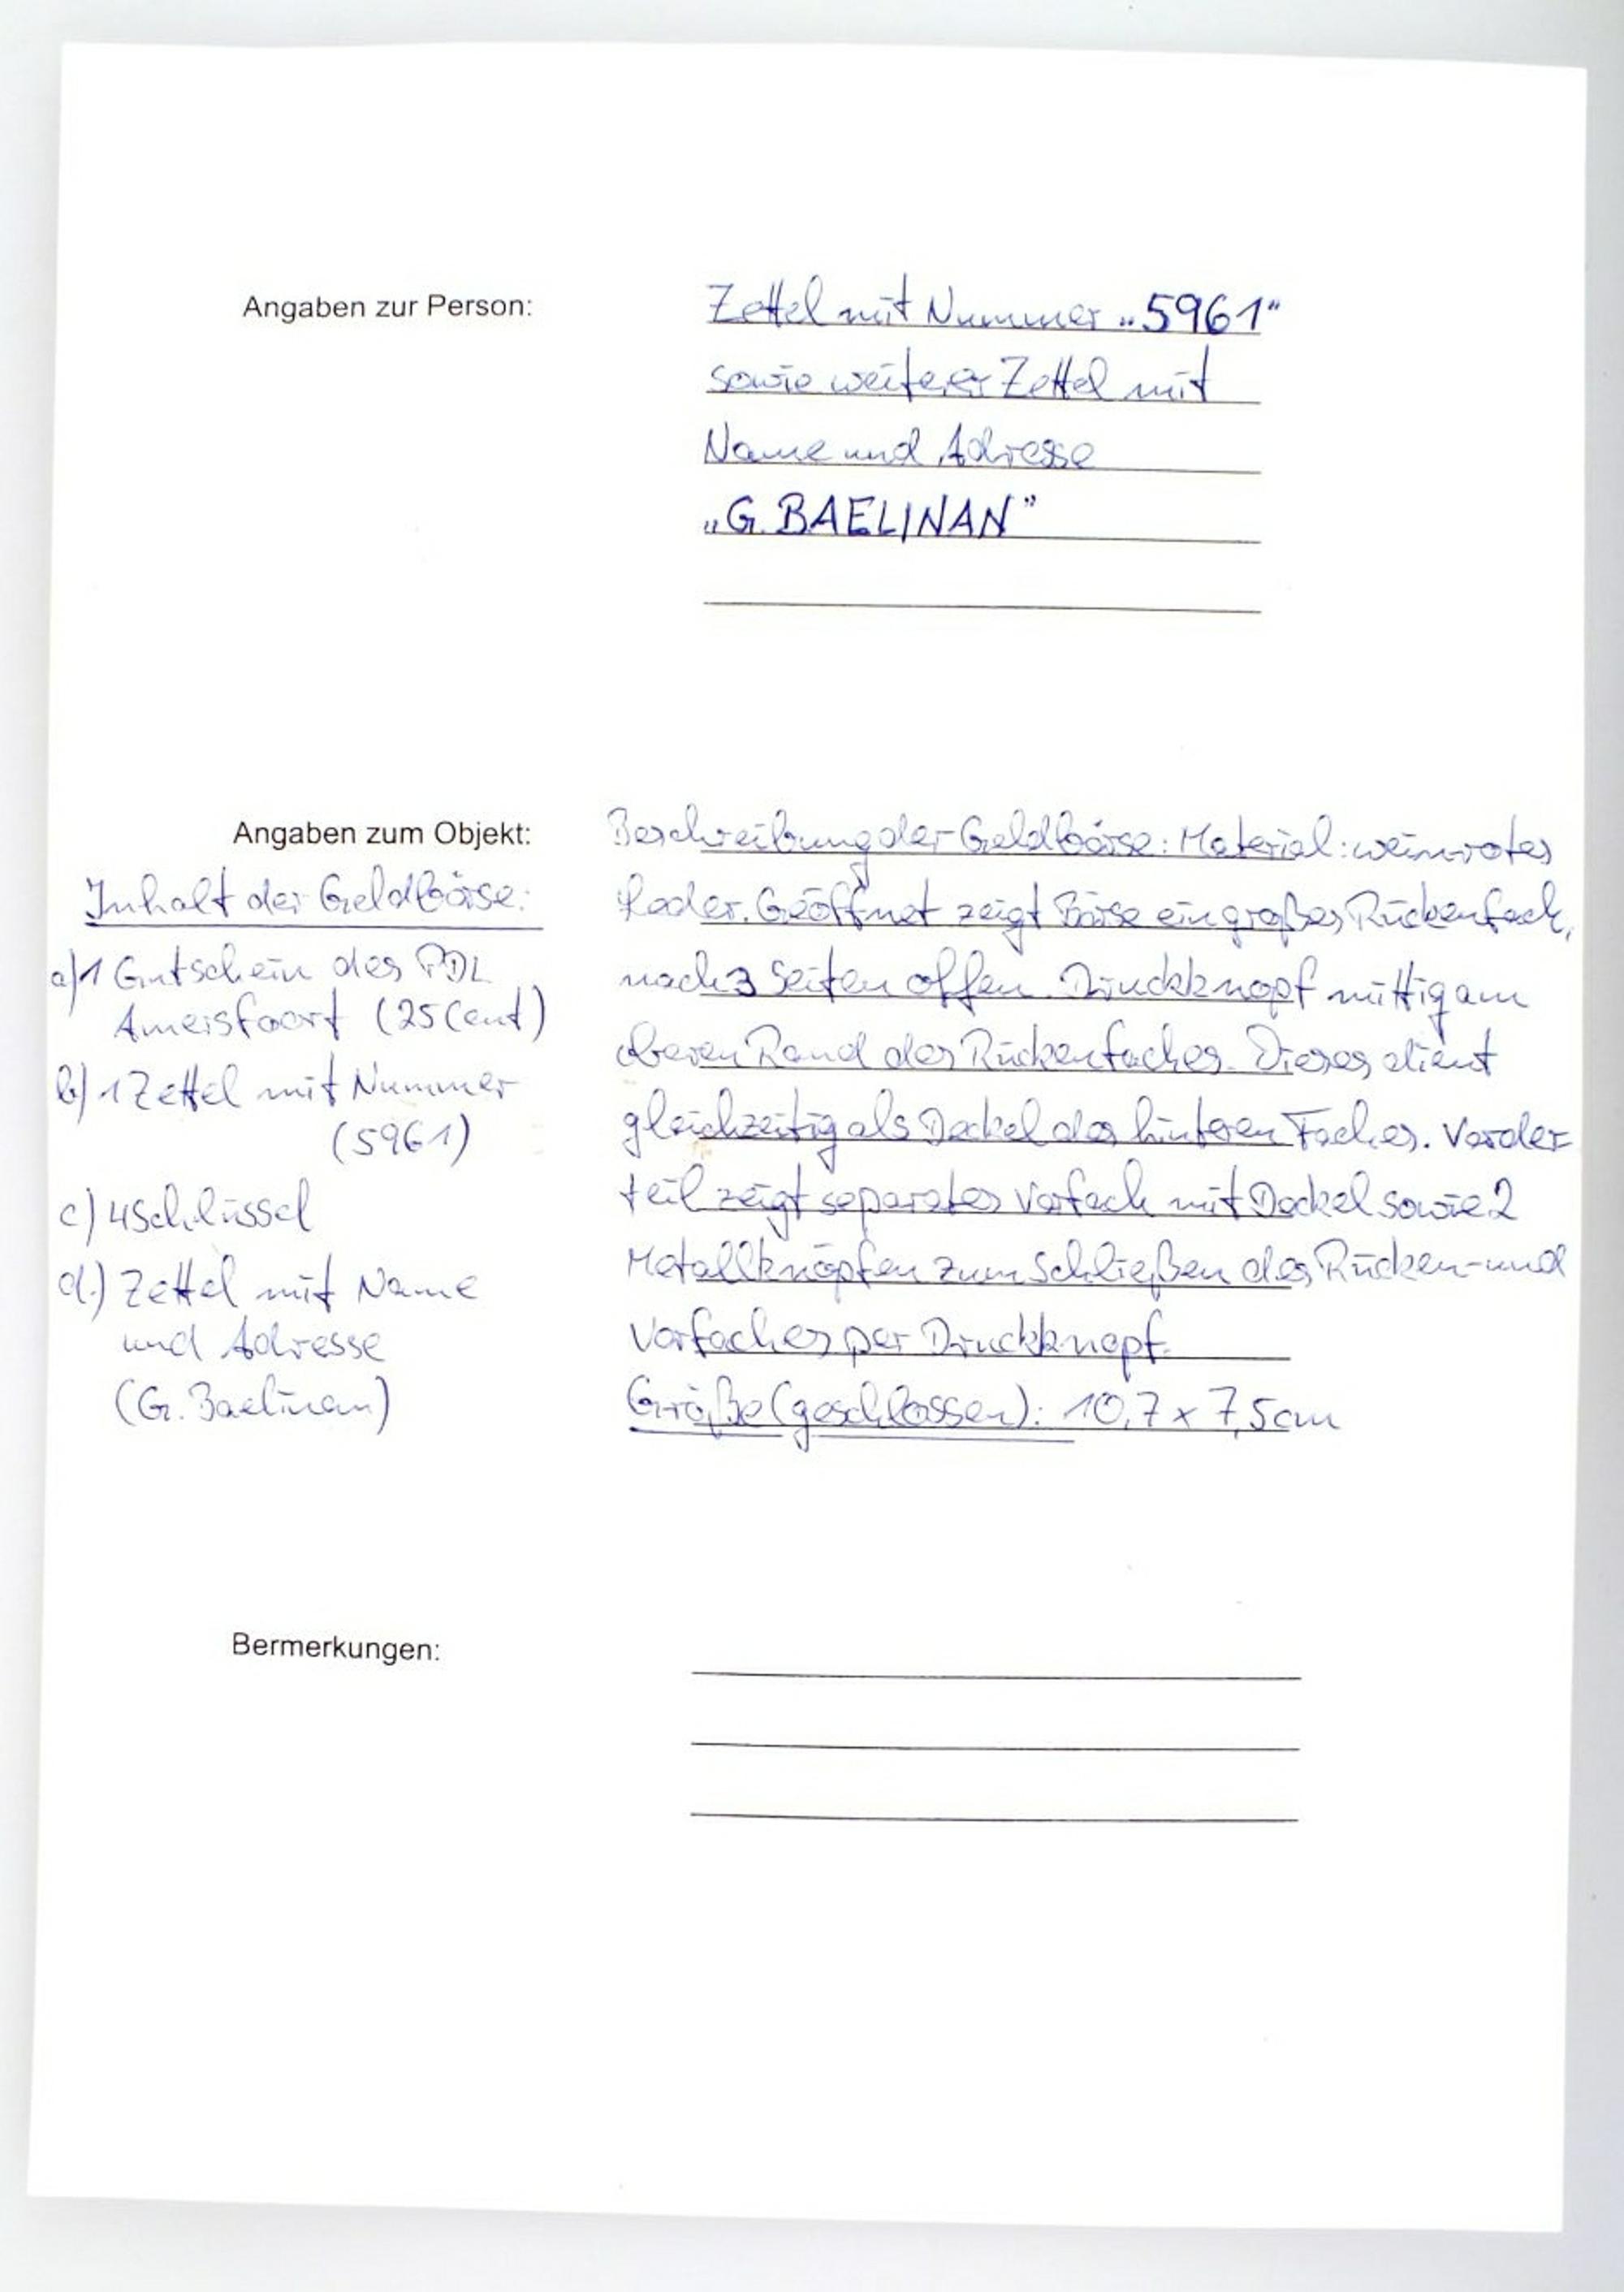 Angaben zur Person:
Zettel mit Nummer „5961“
sowie weiterer Zettel mit
Name und Adresse
„G. BAELINAN“
Angaben zum Objekt:
Inhalt der Geldbörse:
a) 1 Gutschein des PDL
Amersfoort (25 Cent)
b) 1 Zettel mit Nummer
(5961)
c) 4 Schlüssel
d.) Zettel mit Name
und Adresse
(G. Baelinan)
Beschreibung der Geldbörse: Material: weinrotes
Leder. Geöffnet zeigt Börse ein großes Rückenfach,
nach 3 Seiten offen. Druckknopf mittig am
oberen Rand des Rückenfaches. Dieses dient
gleichzeitig als Deckel des hinteren Faches. Vorder=
teil zeigt separates Vorfach mit Deckel sowie 2
Metallknöpfen zum Schließen des Rücken- und
Vorfaches per Druckknopf.
Größe (geschlossen): 10,7 x 7,5cm
Bermerkungen: